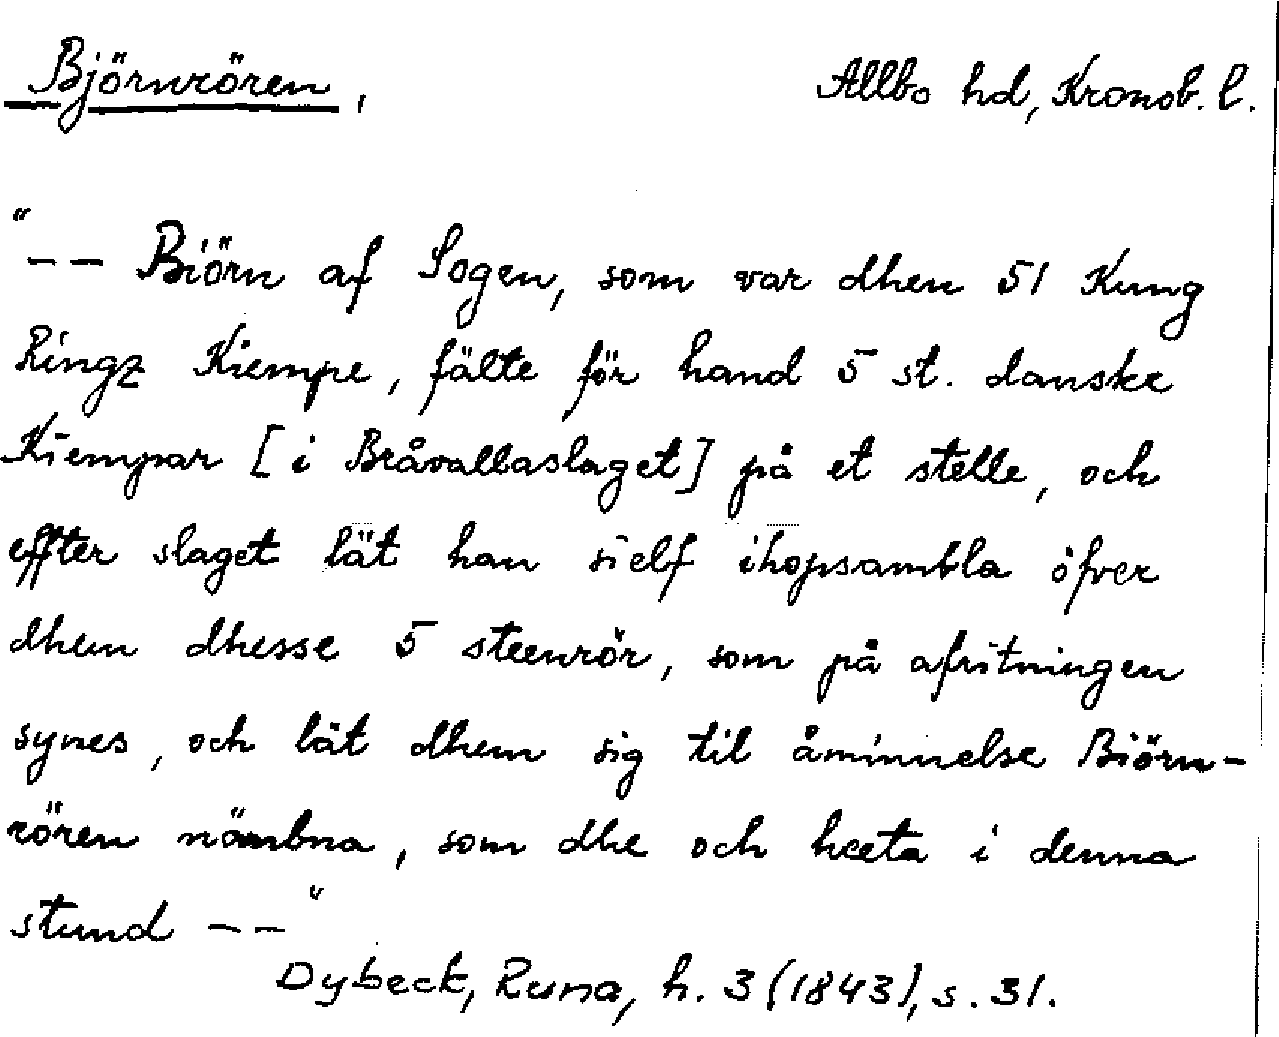 Björnrören, Allbo hd, Kronob. l.
"-- Biörn af Sogen, som var dhen 51 Kung
Ringz Kiempe, fälte för hand 5 st. danske
Kiempar [i Bråvallaslaget] på et stelle, och
effter slaget lät han sielf ihopsambla öfver
dhem dhesse 5 steenrör, som på afritningen
synes, och lät dhem sig til åminnelse Biörn-
rören nämbna, som dhe och heeta i denna
stund --"
Dybeck, Runa, h. 3 (1843), s. 31.